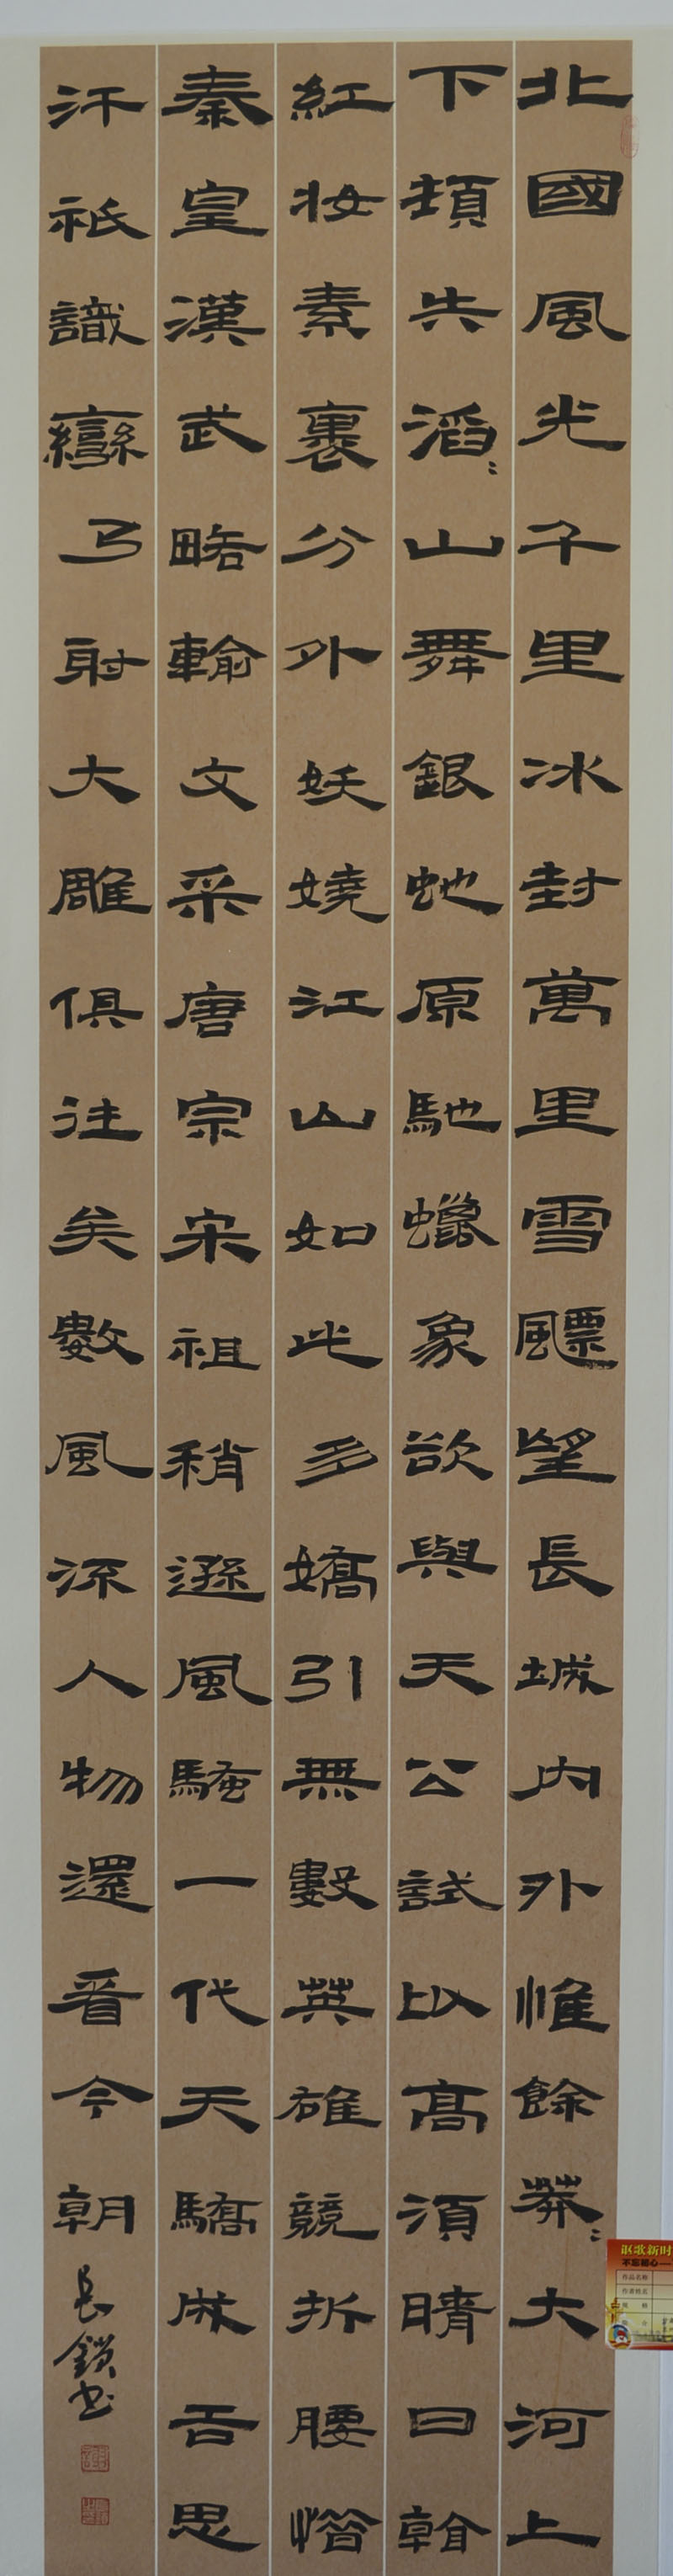 北國風光千里冰封萬里雪飃望長城内外惟餘莽〻大河上
下頓失滔〻山舞銀虵原馳蠟象欲與天公試以高須晴日看
紅妝素裹分外妖嬈江山如此多嬌引無數英雄競折腰惜
秦皇漢武略輸文采唐宗宋祖稍遜風騷一代天驕成吉思
汗祇識彎弓射大雕俱往矣數風流人物還看今朝
長鎖書
讴歌新时
不忘初心—
作品名称
作者姓名